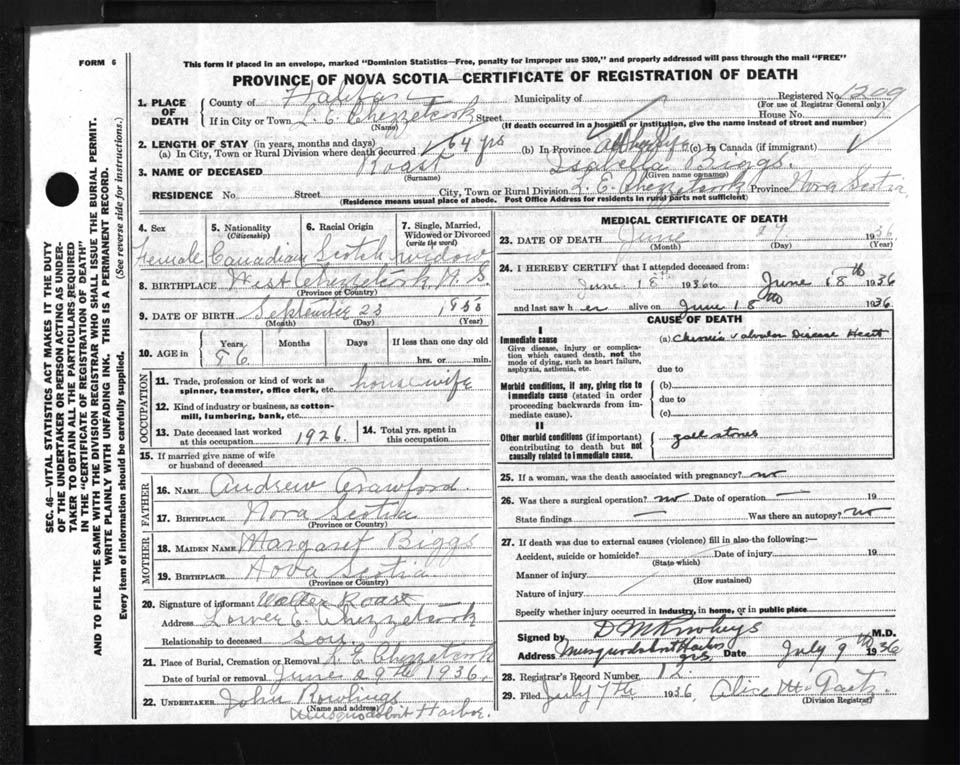 FORM 6
This form if placed in an envelope, marked "Dominion Statistics—Free, penalty for improper use $300," and properly addressed will pass through the mail "FREE"
PROVINCE OF NOVA SCOTIA—CERTIFICATE OF REGISTRATION OF DEATH
SEC. 46—VITAL STATISTICS ACT MAKES IT THE DUTY
OF THE UNDERTAKER OR PERSON ACTING AS UNDER-
TAKER TO OBTAIN ALL THE PARTICULARS REQUIRED
IN THE "CERTIFICATE OF REGISTRATION OF DEATH"
AND TO FILE THE SAME WITH THE DIVISION REGISTRAR WHO SHALL ISSUE THE BURIAL PERMIT.
WRITE PLAINLY WITH UNFADING INK. THIS IS A PERMANENT RECORD.
Every item of information should be carefully supplied. (See reverse side for instructions.)
1. PLACE OF DEATH County of Halifax Municipality of Registered No. 299
(For use of Registrar General only)
If in City or Town L. E. Chezzetcook Street House No.
(Name) (If death occurred in a hospital or institution, give the name instead of street and number)
2. LENGTH OF STAY (in years, months and days)
(a) In City, Town or Rural Division where death occurred 64 yrs (b) In Province All her life (c) In Canada (if immigrant)
3. NAME OF DECEASED Roast Isabella Biggs.
(Surname) (Given name or names)
RESIDENCE No. Street City, Town or Rural Division L. E. Chezzetcook Province Nova Scotia
(Residence means usual place of abode. Post Office Address for residents in rural parts not sufficient)
4. Sex 5. Nationality (Citizenship) 6. Racial Origin 7. Single, Married, Widowed or Divorced (write the word)
Female Canadian Scotch widow
8. BIRTHPLACE West Chezzetcook N. S.
(Province or Country)
9. DATE OF BIRTH September 23
(Month) (Day) (Year)
10. AGE in Years Months Days If less than one day old
86 hrs. or min.
OCCUPATION
11. Trade, profession or kind of work as spinner, teamster, office clerk, etc. housewife
12. Kind of industry or business, as cotton-mill, lumbering, bank, etc.
13. Date deceased last worked at this occupation 1926. 14. Total yrs. spent in this occupation
15. If married give name of wife or husband of deceased
FATHER
16. NAME Andrew Crawford.
17. BIRTHPLACE Nova Scotia
(Province or Country)
MOTHER
18. MAIDEN NAME Margaret Biggs
19. BIRTHPLACE Nova Scotia
(Province or Country)
20. Signature of informant Walter Roast
Address Lower E. Chezzetcook
Relationship to deceased son.
21. Place of Burial, Cremation or Removal L. E. Chezzetcook
Date of burial or removal June 29th 1936.
22. UNDERTAKER John Rowlings
(Name and address)
Musquodoboit Harbor.
MEDICAL CERTIFICATE OF DEATH
23. DATE OF DEATH June 27 1936
(Month) (Day) (Year)
24. I HEREBY CERTIFY that I attended deceased from:
June 18th 1936 to June 18th 1936
and last saw her alive on June 18th 1936.
CAUSE OF DEATH
I
Immediate cause
Give disease, injury or complication which caused death, not the mode of dying, such as heart failure, asphyxia, asthenia, etc.
(a) Chronic valvular Disease Heart
due to
Morbid conditions, if any, giving rise to immediate cause (stated in order proceeding backwards from immediate cause).
(b)
due to
(c)
II
Other morbid conditions (if important) contributing to death but not causally related to immediate cause.
gall stones
25. If a woman, was the death associated with pregnancy? no
26. Was there a surgical operation? no Date of operation — 19
State findings — Was there an autopsy? no
27. If death was due to external causes (violence) fill in also the following:—
Accident, suicide or homicide? Date of injury 19
(State which)
Manner of injury
(How sustained)
Nature of injury
Specify whether injury occurred in industry, in home, or in public place
Signed by M.D.
Address Musquodoboit Harbor Date July 9th 1936
28. Registrar's Record Number 12
29. Filed July 7th 1936
(Division Registrar)